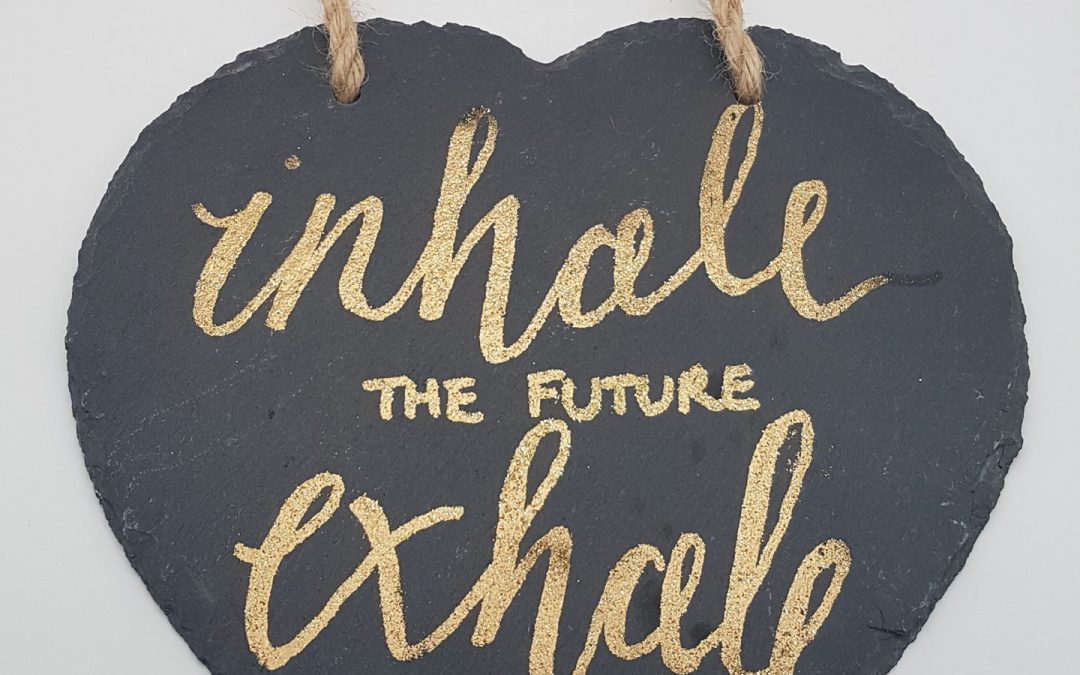 inhale
THE FUTURE
exhale